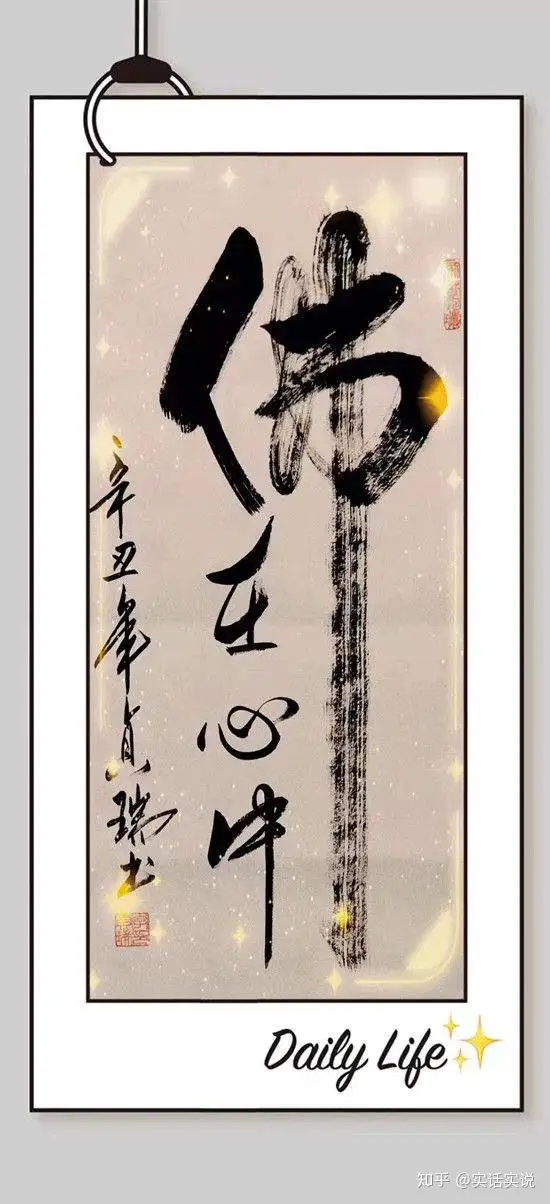 佛
在心中
辛丑年貞瑞书
Daily Life
知乎 @实话实说